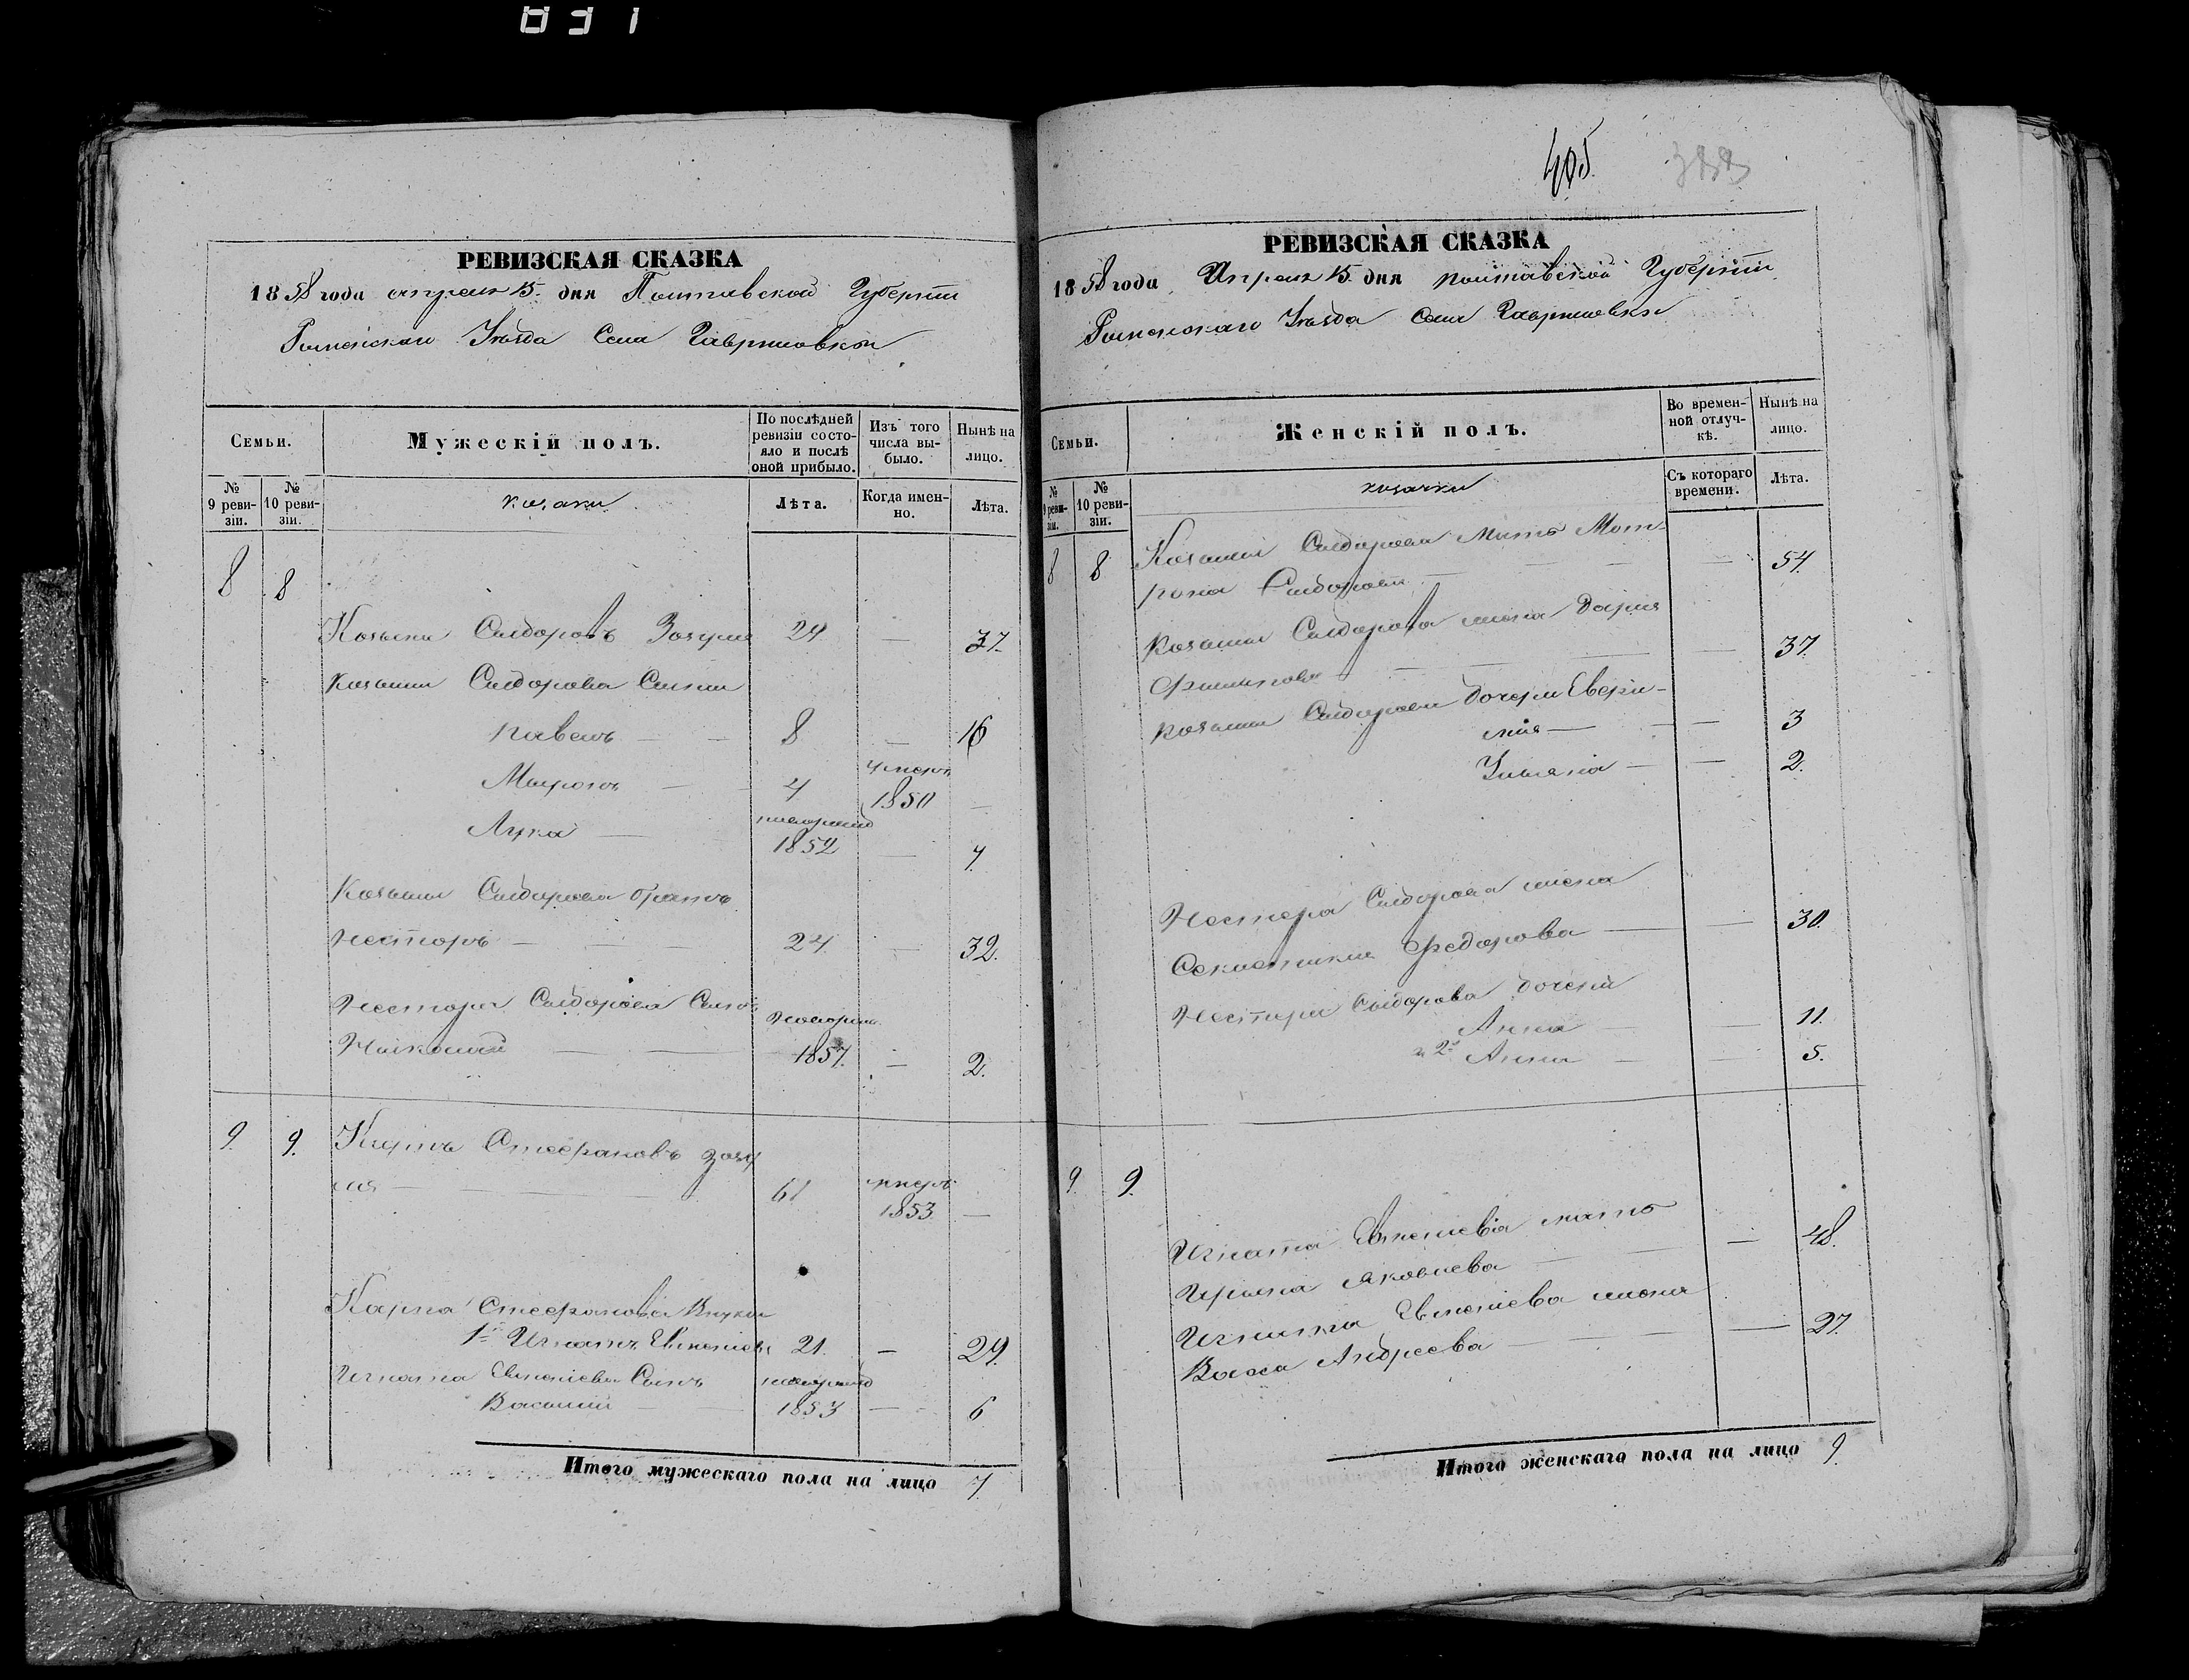 031
РЕВИЗСКАЯ СКАЗКА
1858 года апреля 15 дня Полтавской Губернии
Роменскаго Уѣзда Села Гавришовки
Семьи.
Мужескій полъ.
По послѣдней ревизіи состояло и послѣ оной прибыло.
Изъ того числа выбыло.
Нынѣ на лицо.
№ 9 ревизіи.
№ 10 ревизіи.
козаки
Лѣта.
Когда именно.
Лѣта.
8 8
Козьма Сидоровъ Зозуля 29 — 37.
Козьмы Сидорова Сыны
Павелъ — — 8 — 16
Миронъ — 4 умеръ 1850 —
Лука — новорожд 1852 — 7.
Козьмы Сидорова братъ
Несторъ — — — 24 — 32.
Нестора Сидорова Сынъ
Николай — — новорожд 1857. — 2.
9. 9. Карпъ Стефановъ Зозу
ля — — 61 умеръ 1853 —
Карпа Стефанова Внуки
1й Игнатъ Евменіевъ 21. — 29.
Игната Евменіева Сынъ новорожд
Василий — — 1853 — 6
Итого мужескаго пола на лицо 7.
405
РЕВИЗСКАЯ СКАЗКА
1858 года Апреля 15 дня Полтавской Губернии
Роменскаго Уѣзда Села Гавришовки
Семьи.
Женскій полъ.
Во временной отлучкѣ.
Нынѣ на лицо.
№ 9 ревизіи.
№ 10 ревизіи.
козачки
Съ котораго времени.
Лѣта.
8 8 Козьмы Сидорова мать Мот-
рона Сидорова — — — — 54.
Козьмы Сидорова жена Дарья
Филипова — — — — 37.
Козьмы Сидорова дочери Евфи-
мія — — — 3
Ульяна — — 2.
Нестера Сидорова жена
Секлетикия Федорова — — 30.
Нестора Сидорова дочери
Анна — — 11.
2я Анна — — 5.
9. 9.
Игната Евменіева мать
Ирина Яковлева — — 48.
Игната Евменіева жена
Васса Андреева — — — 27.
Итого женскаго пола на лицо 9.